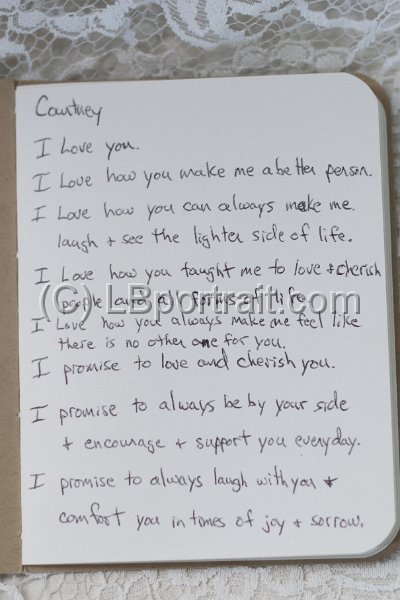 Courtney
I Love you.
I Love how you make me a better person.
I Love how you can always make me
laugh + see the lighter side of life.
I Love how you taught me to love + cherish
people and all forms of life.
(C) LBportrait.com
I Love how you always make me feel like
there is no other one for you.
I promise to love and cherish you.
I promise to always be by your side
+ encourage + support you everyday.
I promise to always laugh with you +
comfort you in times of joy + sorrow.